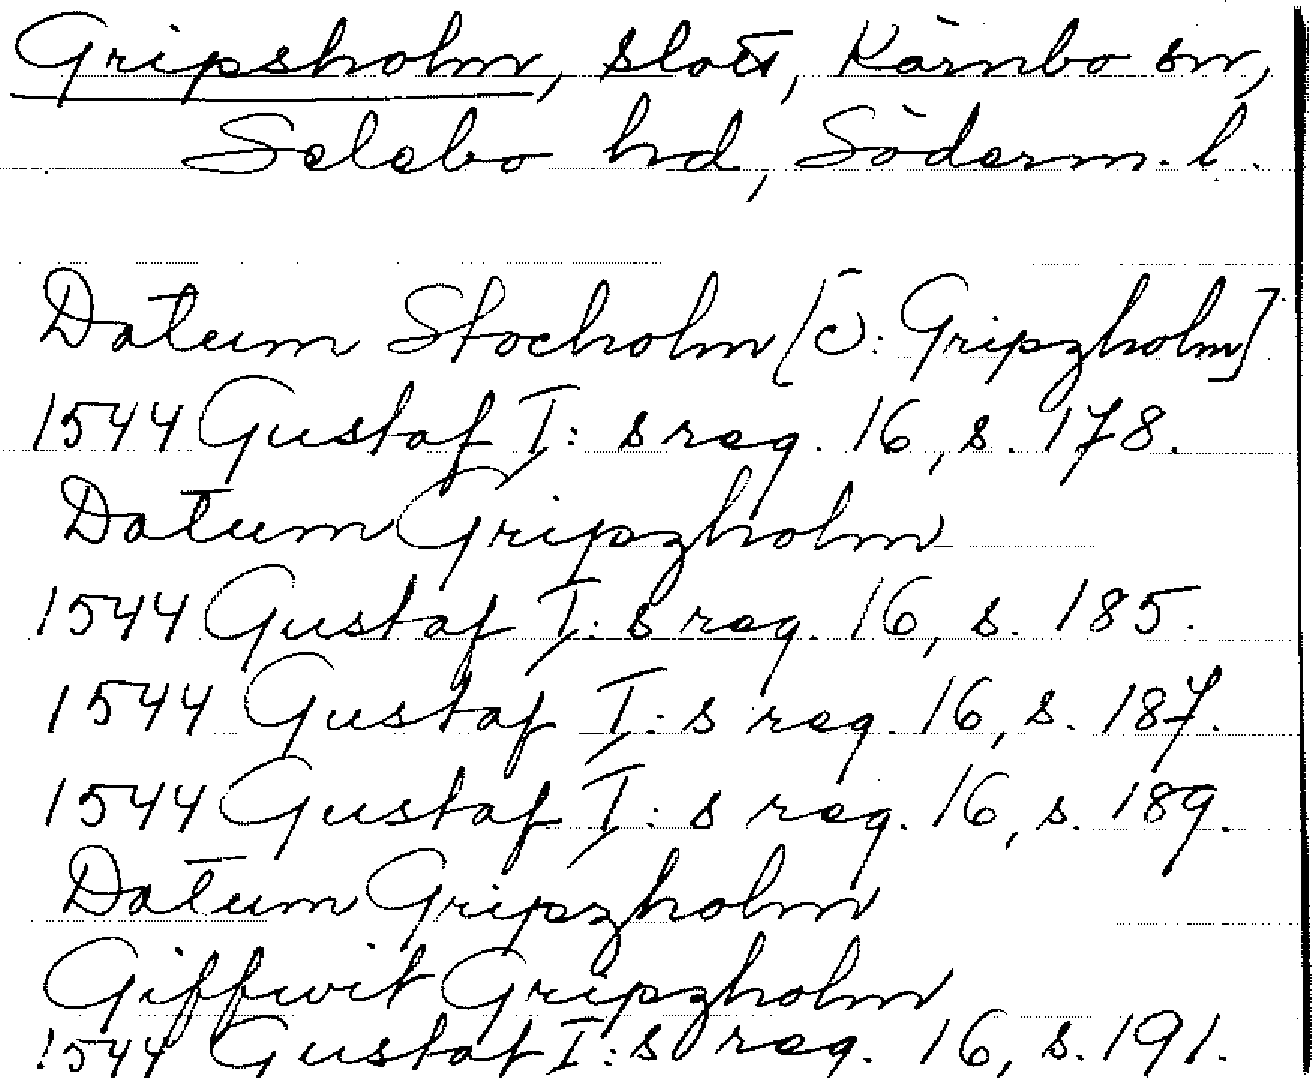 Gripsholm, slott, Kärnbo sn,
Selebo hd, Söderm. l.
Datum Stocholm [ɔ: Gripzholm]
1544 Gustaf I: s reg. 16, s. 178.
Datum Gripzholm
1544 Gustaf I: s reg. 16, s. 185.
1544 Gustaf I: s reg. 16, s. 187.
1544 Gustaf I: s reg. 16, s. 189.
Datum Gripzholm
Giffwit Gripzholm
1544 Gustaf I: s reg. 16, s. 191.